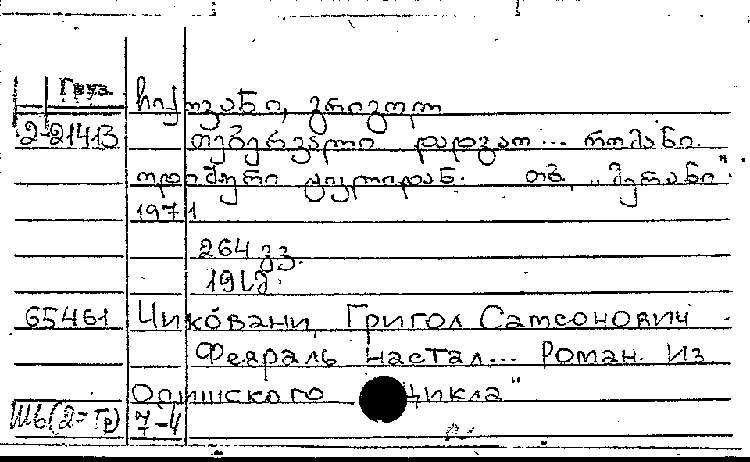 Груз
ჩიქოვანი, გრიგოლ
2-21413 თებერვალი დადგაო... რომანი
ოდიშური ციკლიდან. თბ, „მერანი".
1971
264 გვ.
65461 Чиковани, Григол Самсонович
Февраль настал... Роман. Из
Одишского цикла"
Ш6(2=Гр) 7-4